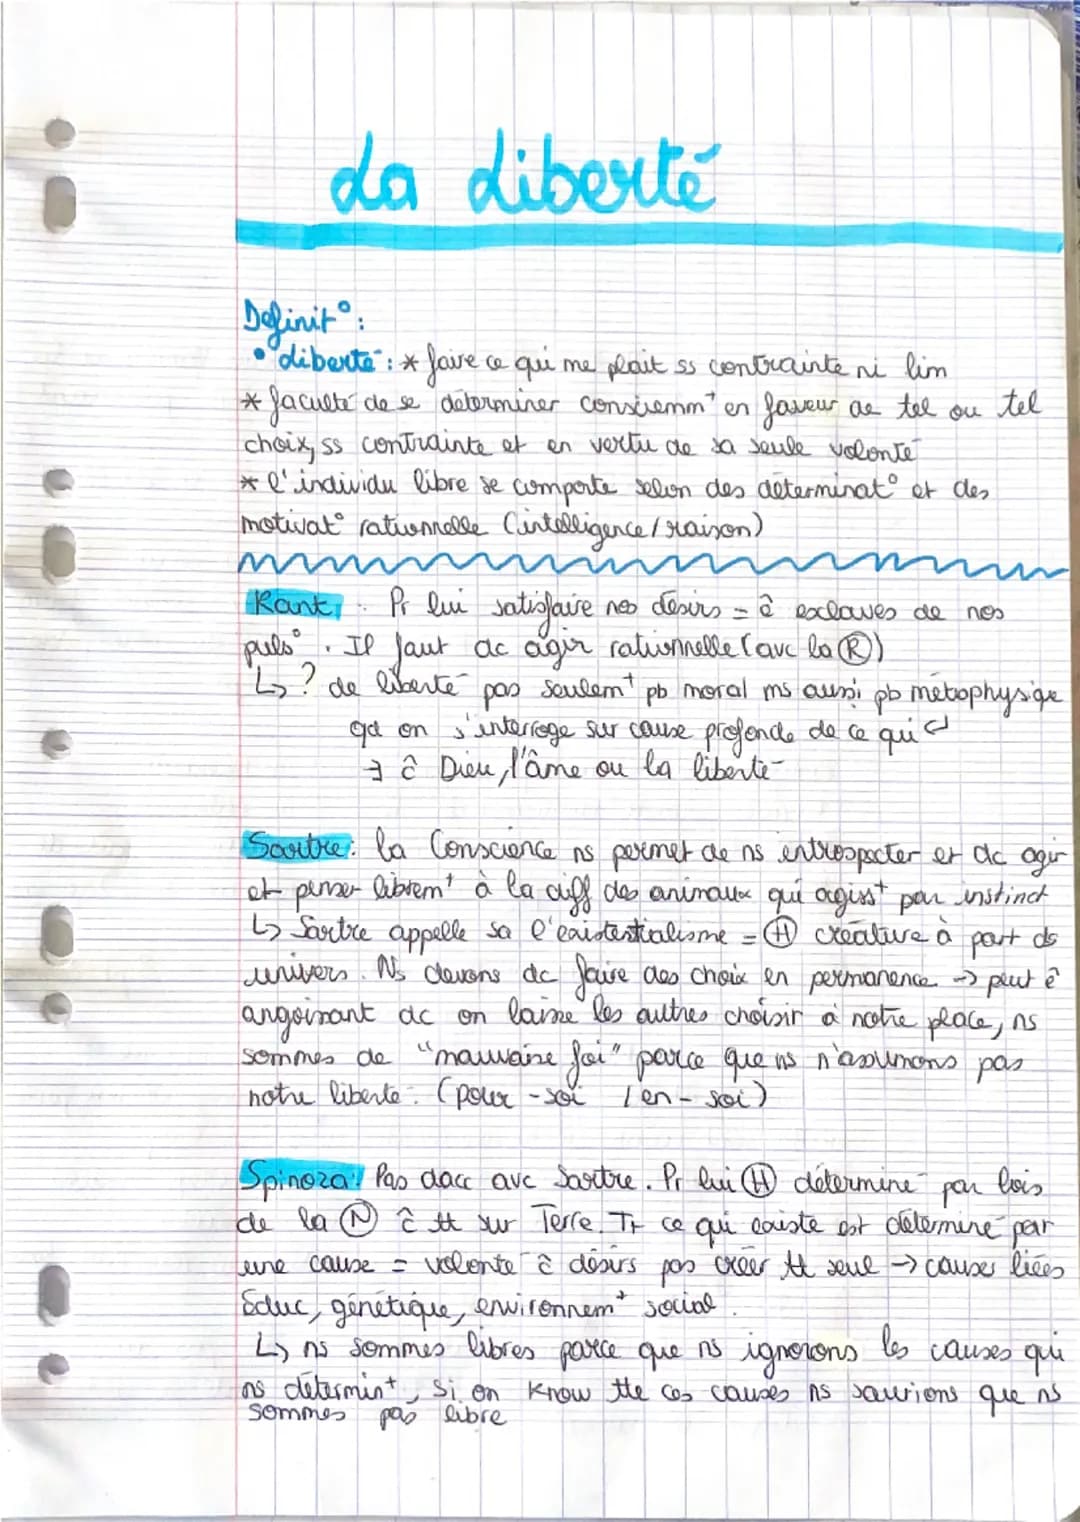 La Liberté
Definit° :
• liberté : * faire ce qui me plait ss contrainte ni lim
* faculté de se déterminer consciemm^t en faveur de tel ou tel
choix, ss contrainte et en vertu de sa seule volonté
* l'individu libre se comporte selon des déterminat° et des
motivat° rationnelle (intelligence / raison)
Kant : Pr lui satisfaire nos désirs = ê esclaves de nos
puls°. Il faut dc agir rationnelle (avc la Ⓡ)
↳ ? de liberté pas seulem^t pb moral ms aussi pb métaphysique
qd on s'interroge sur cause profonde de ce qui
∃ ĉ Dieu, l'âme ou la liberté
Sartre : la Conscience ns permet de ns introspecter et dc agir
et penser librem^t à la diff des animaux qui agiss^t par instinct
↳ Sartre appelle sa l'existentialisme = Ⓗ créature à part ds
univers. Ns devons dc faire des choix en permanence → peut ê
angoissant dc on laisse les autres choisir à notre place, ns
sommes de "mauvaise foi" parce que ns n'assumons pas
notre liberté. (pour-soi / en-soi)
Spinoza : Pas dacc avc Sartre. Pr lui Ⓗ déterminé par lois
de la Ⓝ ĉ tt sur Terre. Tt ce qui existe est déterminé par
une cause = volonté ĉ désirs pas créer tt seul → causes liées
Educ, génétique, environnem^t social.
↳ ns sommes libres parce que ns ignorons les causes qui
ns détermin^t, si on know tte ces causes ns saurions que ns
sommes pas libre